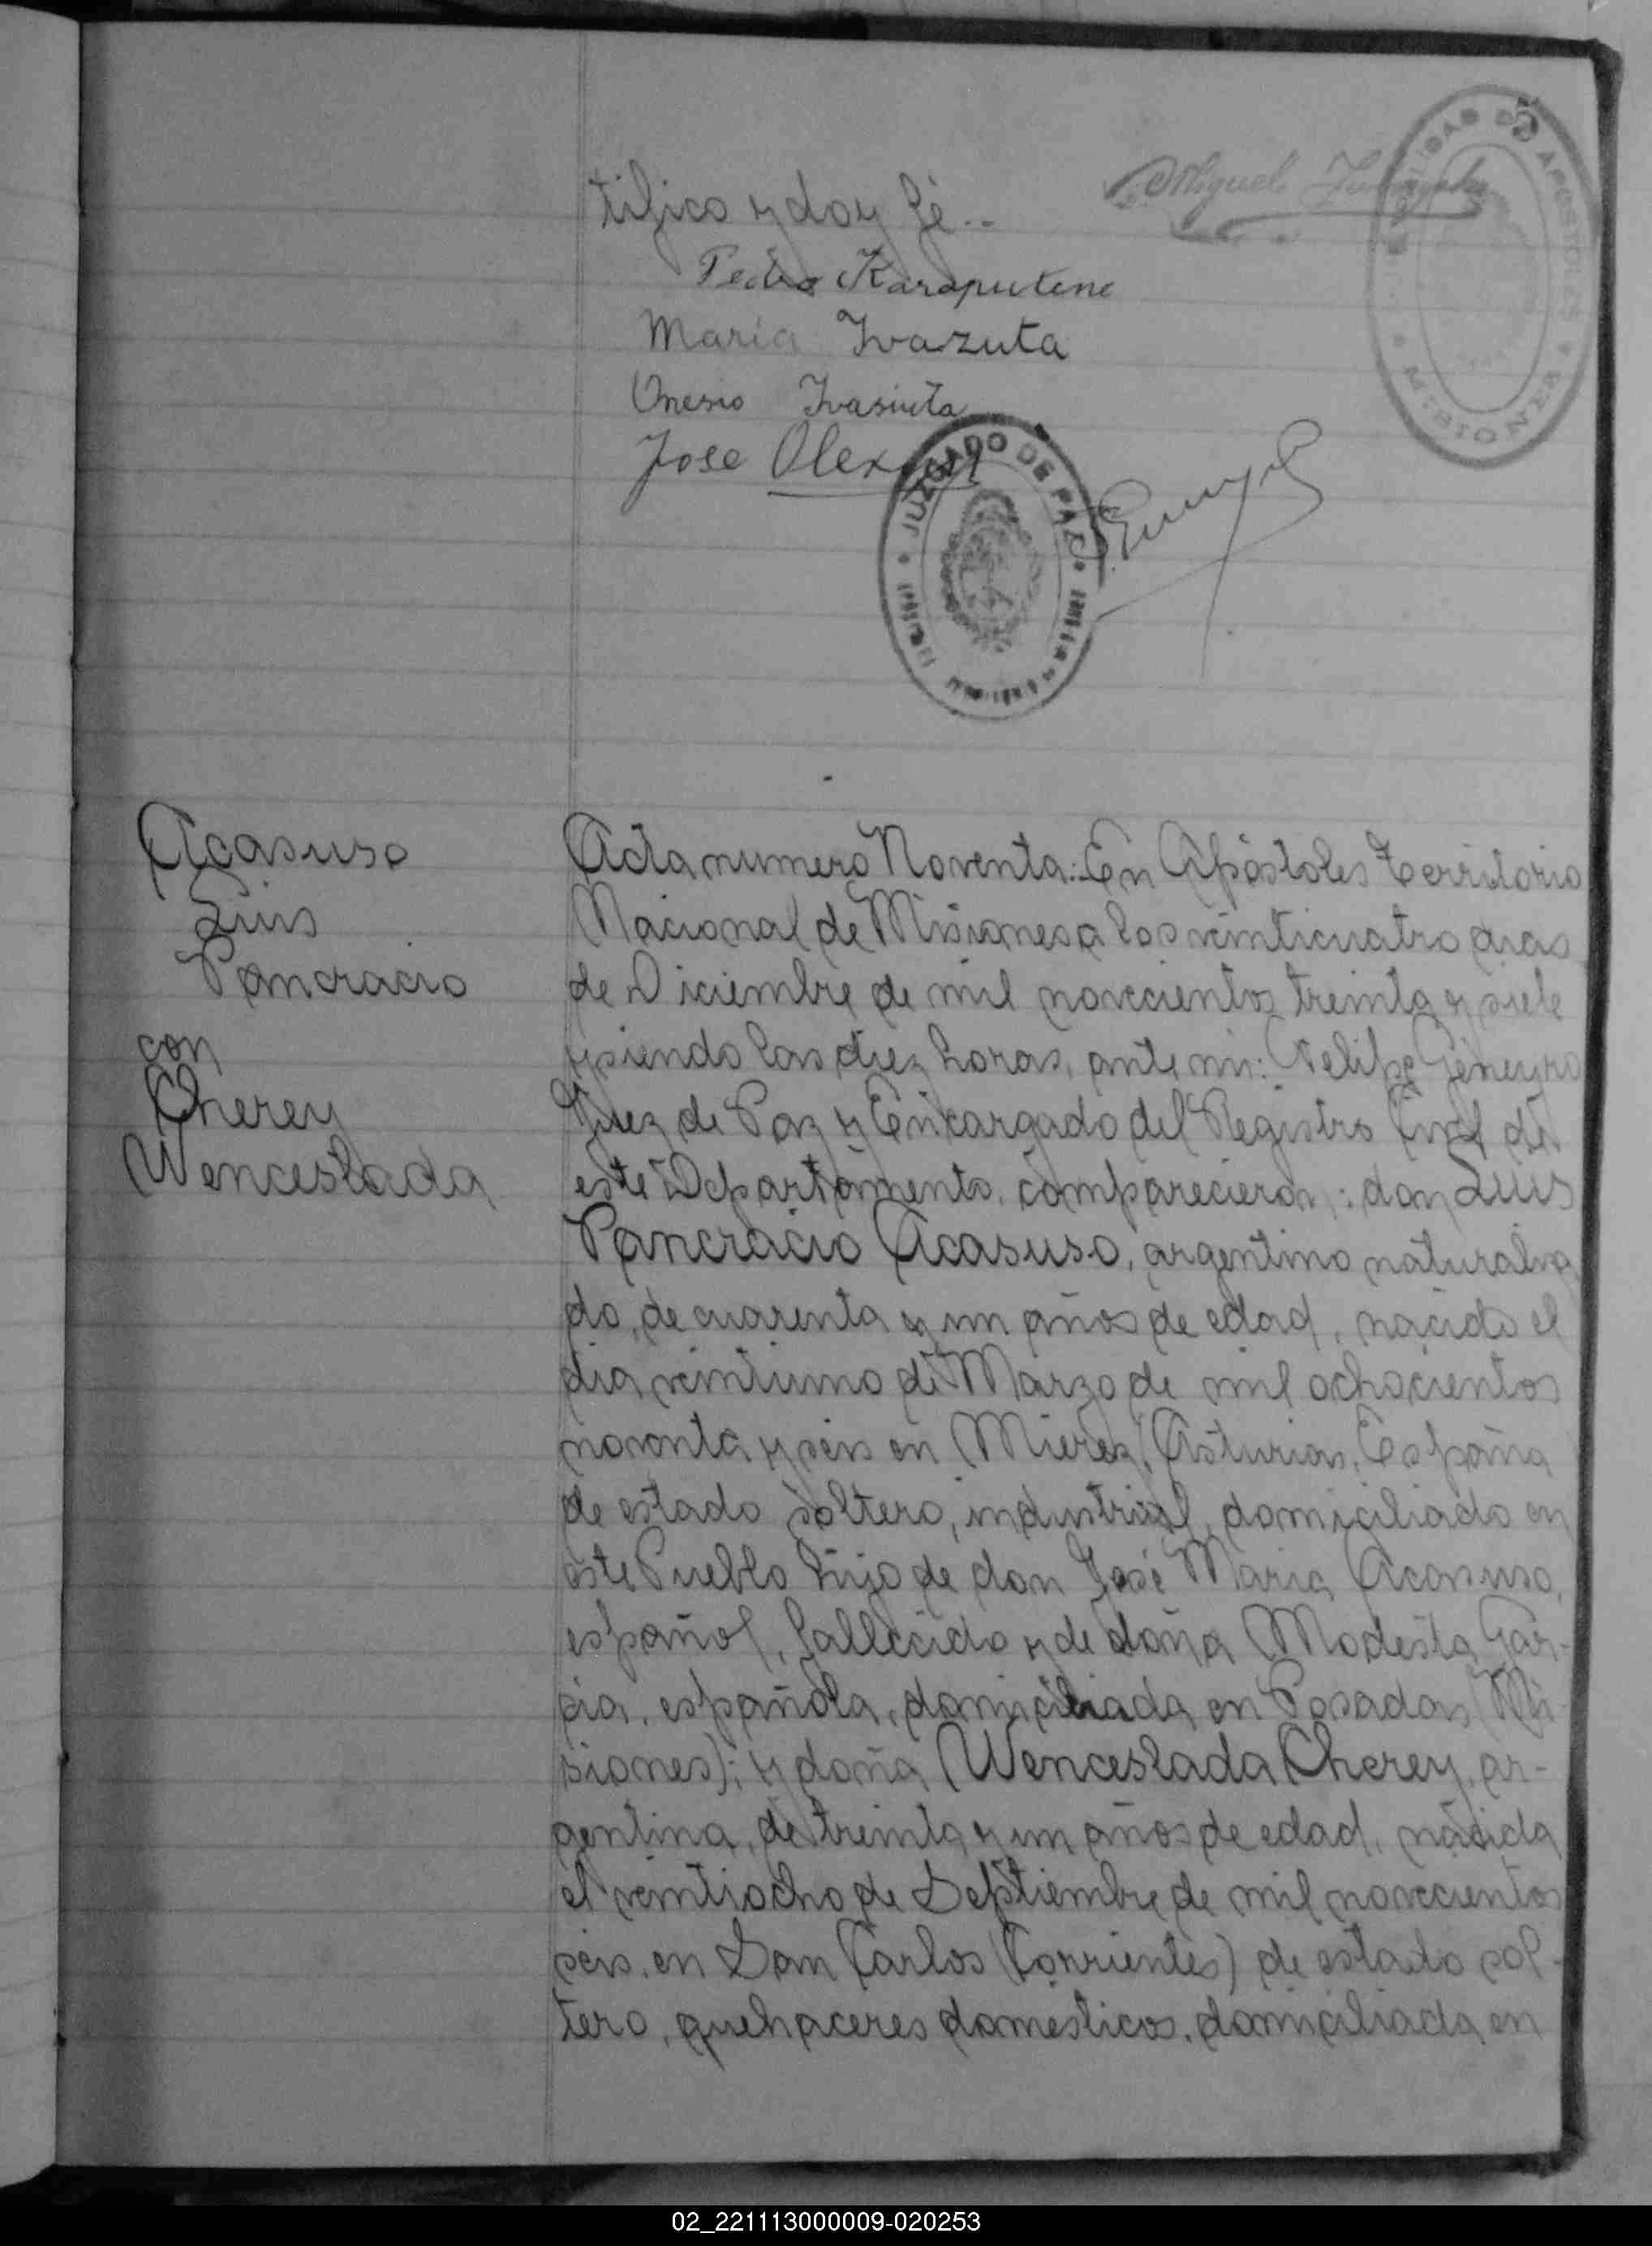 5
tifico y doy fé..
Miguel
MUNICIPALIDAD DE APOSTOLES
MISIONES
Pedro Karaputene
Maria Ivazuta
Onesio Ivasiuta
Jose
JUZGADO DE PAZ
Acasuso
Luis
Pancracio
con
Cherey
Wenceslada
Acta numero Noventa: En Apóstoles Territorio
Nacional de Misiones a los veinticuatro dias
de Diciembre de mil novecientos treinta y siete
y siendo las diez horas, ante mi: Felipe Geneyro
Juez de Paz y Encargado del Registro Civil de
este Departamento, comparecieron: don Luis
Pancracio Acasuso, argentino naturaliza
do, de cuarenta y un años de edad, nacido el
dia veintiuno de Marzo de mil ochocientos
noventa y seis en Mieres, Asturias, España
de estado soltero, industrial, domiciliado en
este Pueblo hijo de don José Maria Acasuso,
español, fallecido y de doña Modesta Gar-
cia, española, domiciliada en Posadas (Mi-
siones); y doña Wenceslada Cherey, ar-
gentina, de treinta y un años de edad, nacida
el veintiocho de Septiembre de mil novecientos
seis, en San Carlos (Corrientes) de estado sol-
tero, quehaceres domesticos, domiciliada en
02_221113000009-020253